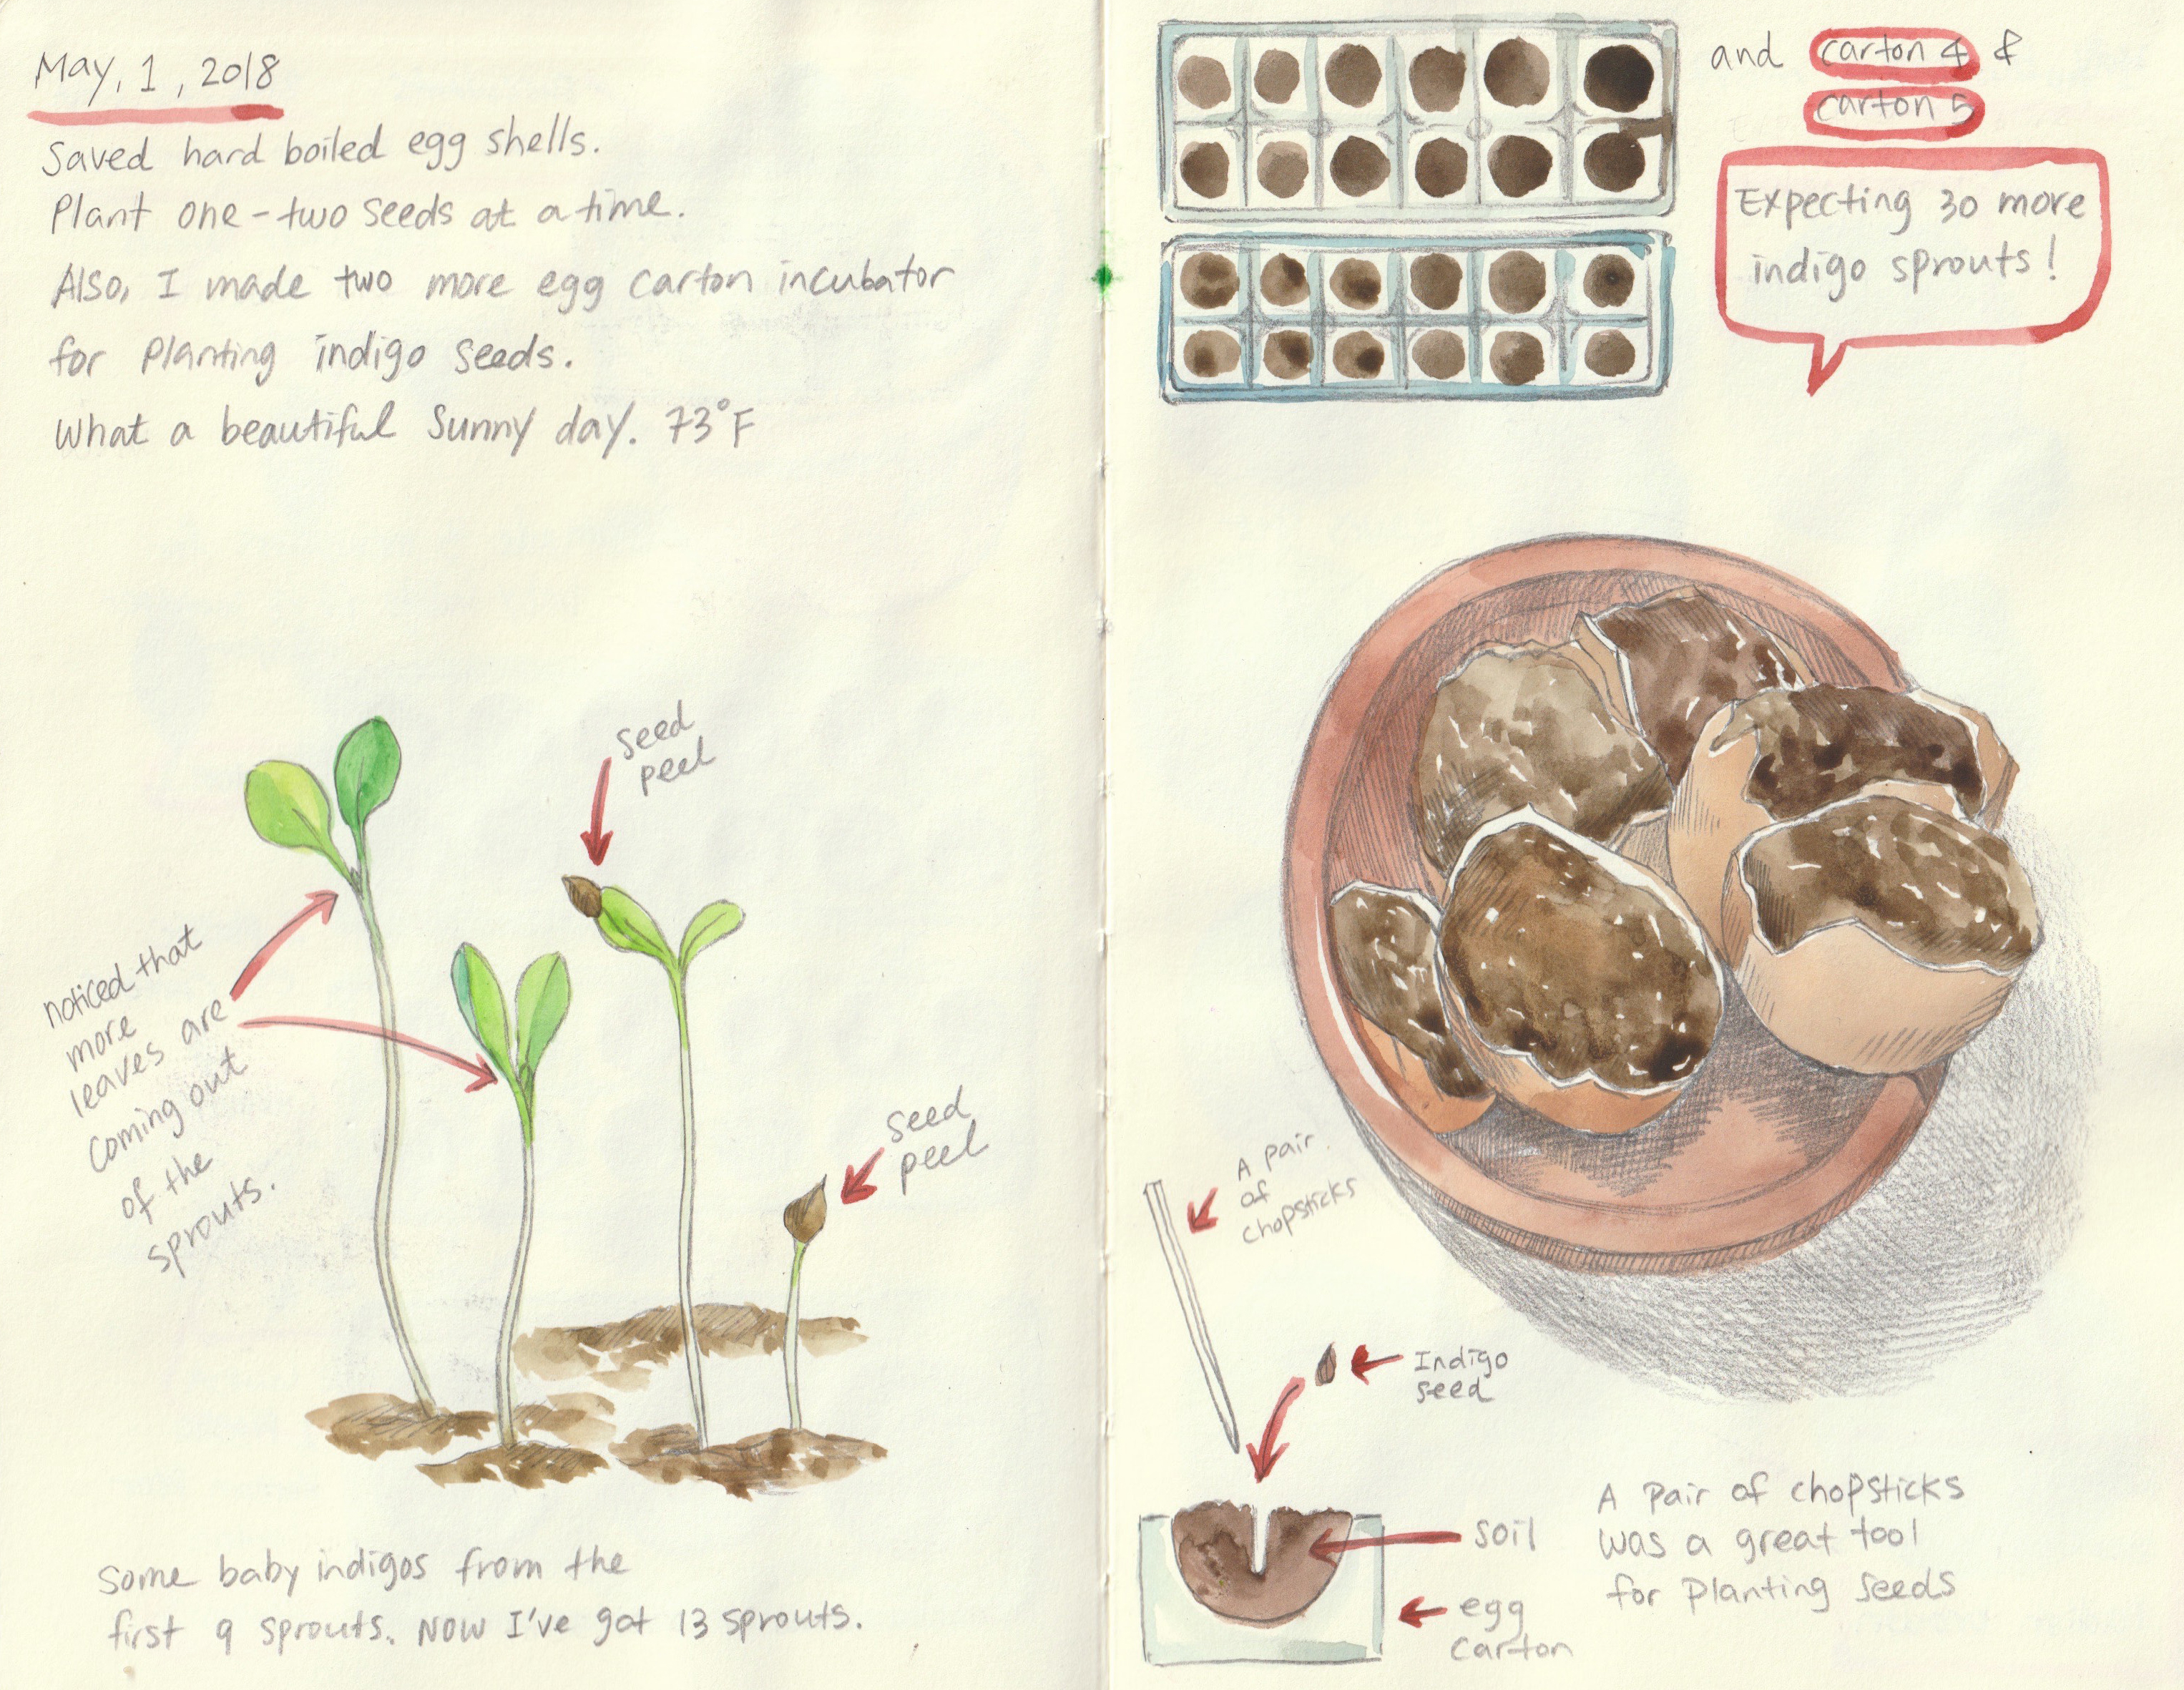 May, 1, 2018
Saved hard boiled egg shells.
Plant one-two seeds at a time.
Also, I made two more egg carton incubator
for planting indigo seeds.
What a beautiful sunny day. 73°F
seed
peel
noticed that
more
leaves are
coming out
of the
sprouts.
seed
peel
Some baby indigos from the
first 9 sprouts. Now I've got 13 sprouts.
and carton 4 &
carton 5
Expecting 30 more
indigo sprouts!
A pair
of
chopsticks
Indigo
seed
soil
egg
carton
A pair of chopsticks
was a great tool
for planting seeds